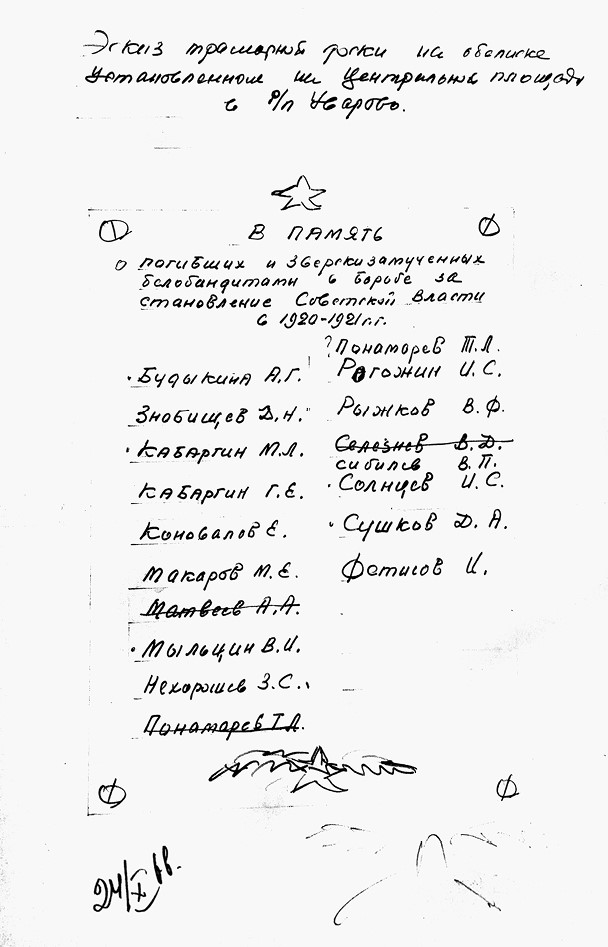 Эскиз траморной доски на обелиске
Установленном на Центральна площади
в р/п Уварово.
В ПАМЯТЬ
о погибших и зверски замученных
белобандитами в борьбе за
становление Советской Власти
в 1920-1921 г.г.
Будыкина А.Г.
Знобищев Д.Н.
Кабаргин М.Л.
Кабаргин Г.Е.
Коновалов Е.
Макаров М.Е.
Матвеев А.А.
Мыльцин В.И.
Нехорошев З.С.
Понамарев Т.Л.
? Понаморев Т.Л.
Рогожин И.С.
Рыжков В.Ф.
Селезнев В.Д.
Сибилев В.П.
Солнцев И.С.
Сушков Д.А.
Фетисов И.
24/X